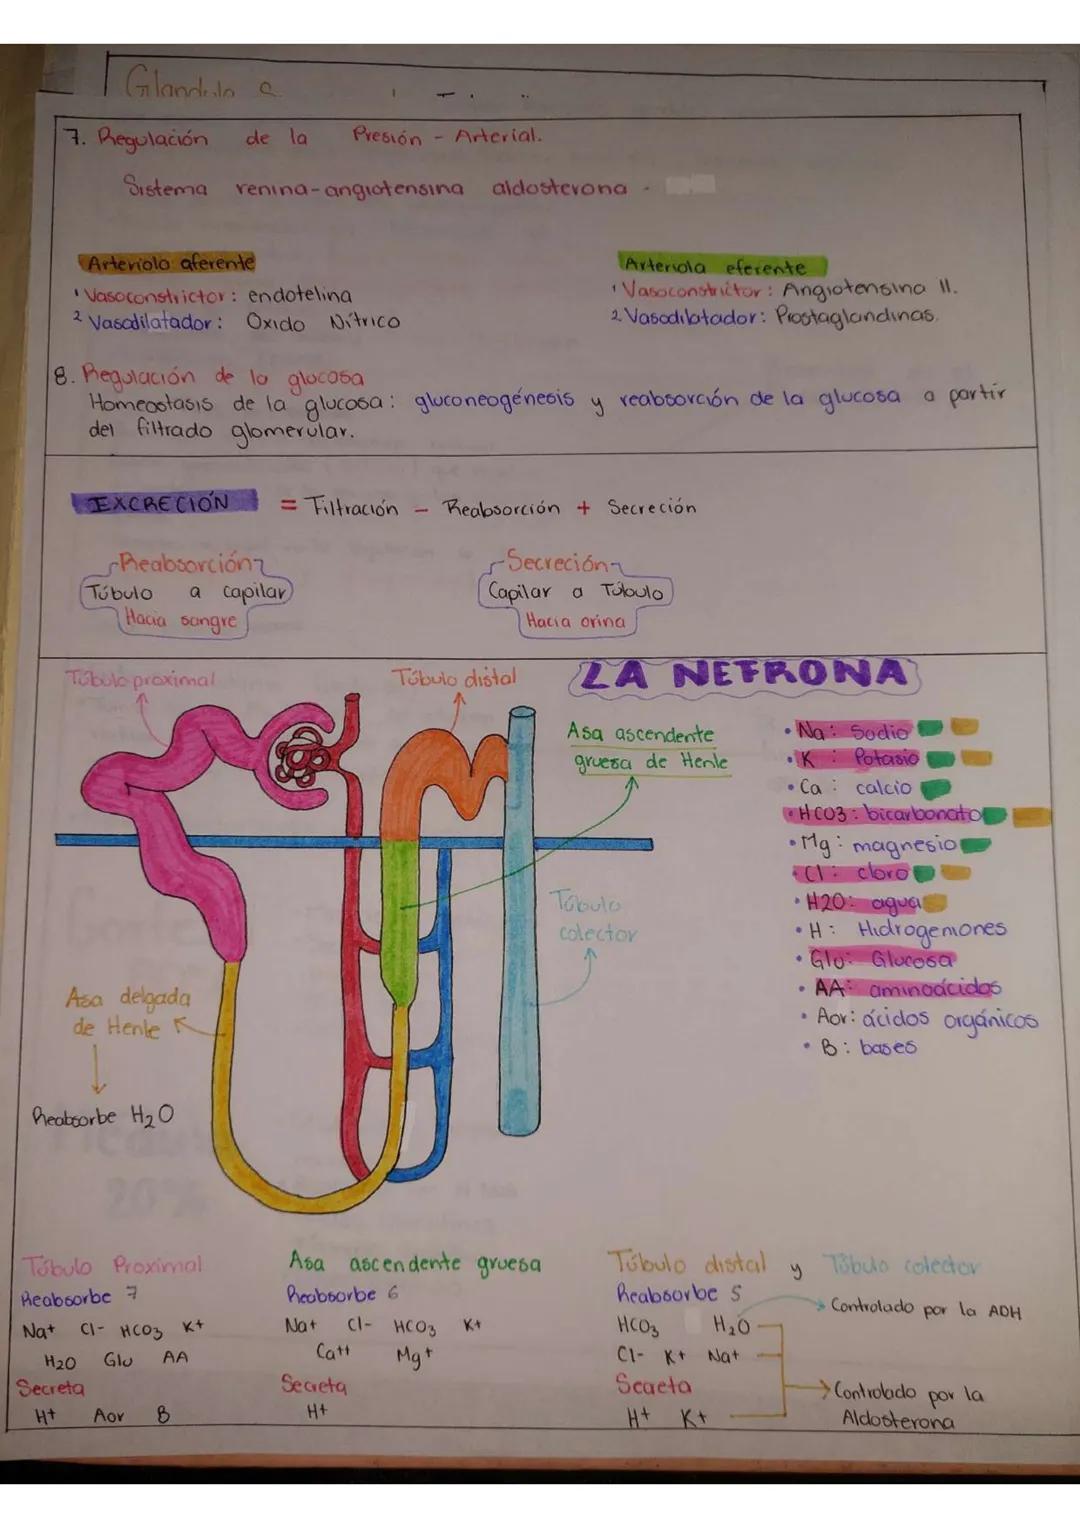 Glandula
7. Regulación de la Presión - Arterial.
Sistema renina-angiotensina aldosterona -
Arteriola aferente
1 Vasoconstrictor: endotelina
2 Vasodilatador: Oxido Nítrico
Arteriola eferente
1 Vasoconstrictor: Angiotensina II.
2 Vasodilatador: Prostaglandinas.
8. Regulación de la glucosa
Homeostasis de la glucosa: gluconeogénesis y reabsorción de la glucosa a partir
del filtrado glomerular.
EXCRECIÓN = Filtración - Reabsorción + Secreción
Reabsorción
Túbulo a capilar
Hacia sangre
Secreción
Capilar a Túbulo
Hacia orina
LA NEFRONA
Túbulo proximal
Túbulo distal
Asa ascendente
gruesa de Henle
Túbulo
colector
Asa delgada
de Henle
Reabsorbe H2O
• Na: Sodio
• K: Potasio
• Ca: calcio
• HCO3: bicarbonato
• Mg: magnesio
• Cl: cloro
• H2O: agua
• H: Hidrogeniones
• Glu: Glucosa
• AA: aminoácidos
• Aor: ácidos orgánicos
• B: bases
Túbulo Proximal
Reabsorbe 7
Na+ Cl- HCO3 K+
H2O Glu AA
Secreta
H+ Aor B
Asa ascendente gruesa
Reabsorbe 6
Na+ Cl- HCO3 K+
Ca++ Mg+
Secreta
H+
Túbulo distal y Túbulo colector
Reabsorbe 5
HCO3 H2O
Cl- K+ Na+
Secreta
H+ K+
Controlado por la ADH
Controlado por la
Aldosterona